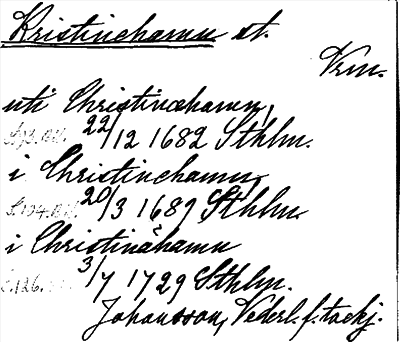 Kristinehamn st.
Vrm.
uti Christinæhamn,
22/12 1682 Sthlm.
i Christinehamn,
20/3 1689 Sthlm.
i Christinähamn
3/7 1729 Sthlm.
Johansson, Nederl. f. tackj.